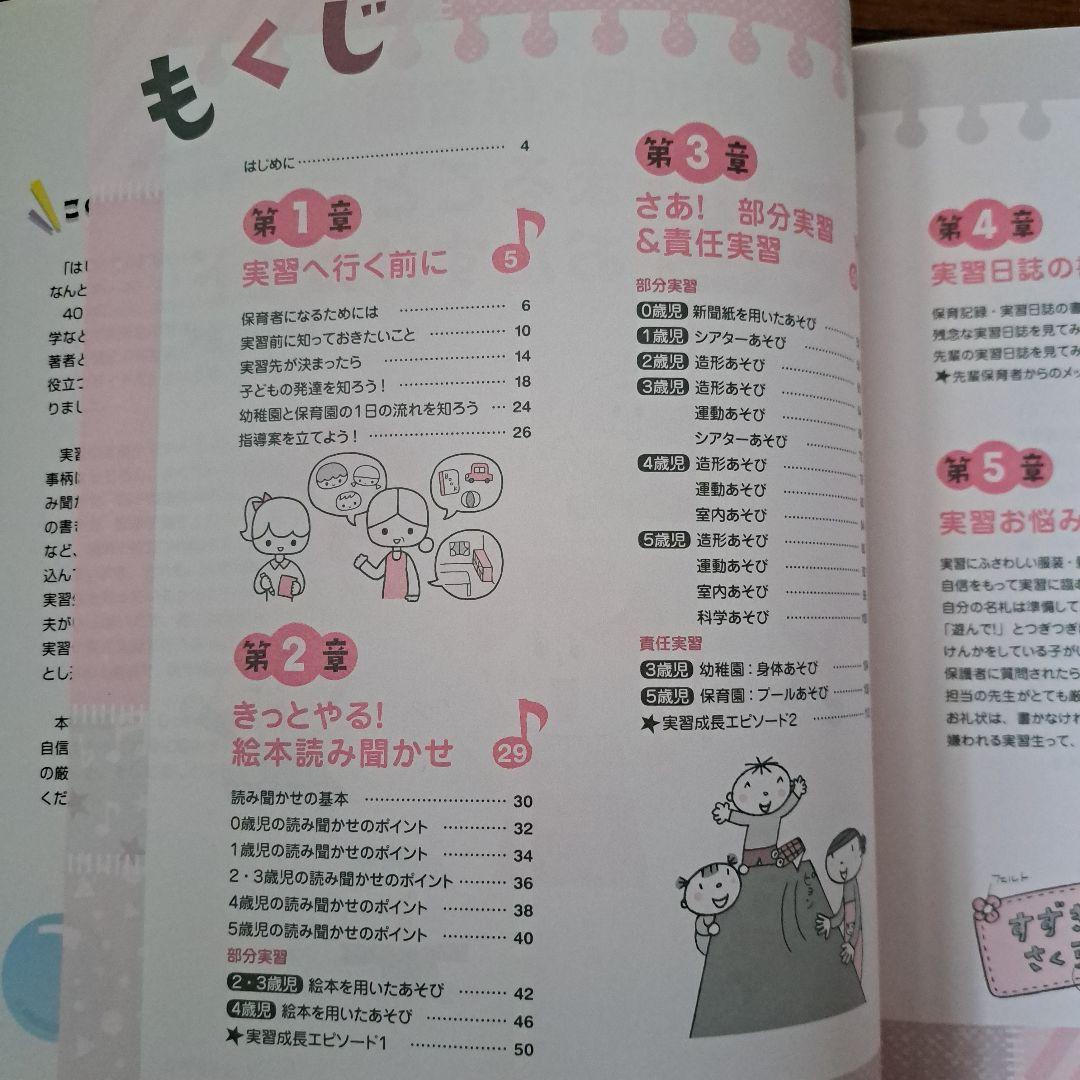 もくじ
はじめに 4
第1章
実習へ行く前に 5
保育者になるためには 6
実習前に知っておきたいこと 10
実習先が決まったら 14
子どもの発達を知ろう! 18
幼稚園と保育園の1日の流れを知ろう 24
指導案を立てよう! 26
第2章
きっとやる!
絵本読み聞かせ 29
読み聞かせの基本 30
0歳児の読み聞かせのポイント 32
1歳児の読み聞かせのポイント 34
2・3歳児の読み聞かせのポイント 36
4歳児の読み聞かせのポイント 38
5歳児の読み聞かせのポイント 40
部分実習
2・3歳児 絵本を用いたあそび 42
4歳児 絵本を用いたあそび 46
★実習成長エピソード1 50
第3章
さあ! 部分実習
&責任実習
部分実習
0歳児 新聞紙を用いたあそび
1歳児 シアターあそび
2歳児 造形あそび
3歳児 造形あそび
運動あそび
シアターあそび
4歳児 造形あそび
運動あそび
室内あそび
5歳児 造形あそび
運動あそび
室内あそび
科学あそび
責任実習
3歳児 幼稚園:身体あそび
5歳児 保育園:プールあそび
★実習成長エピソード2
ピョン
第4章
実習日誌の
保育記録・実習日誌の書
残念な実習日誌を見てみ
先輩の実習日誌を見てみ
★先輩保育者からのメッ
第5章
実習お悩み
実習にふさわしい服装・
自信をもって実習に臨
自分の名札は準備して
「遊んで!」とつぎつぎ
けんかをしている子が
保護者に質問されたら
担当の先生がとても厳
お礼状は、書かなけれ
嫌われる実習生って、
フェルト
すずき
さく
「は
なんと
40
学など
著者と
役立つ
りまし
実習
事柄
み聞か
の書
など、
込ん
実習
夫が
実習
とし
本
自信
の厳
くだ